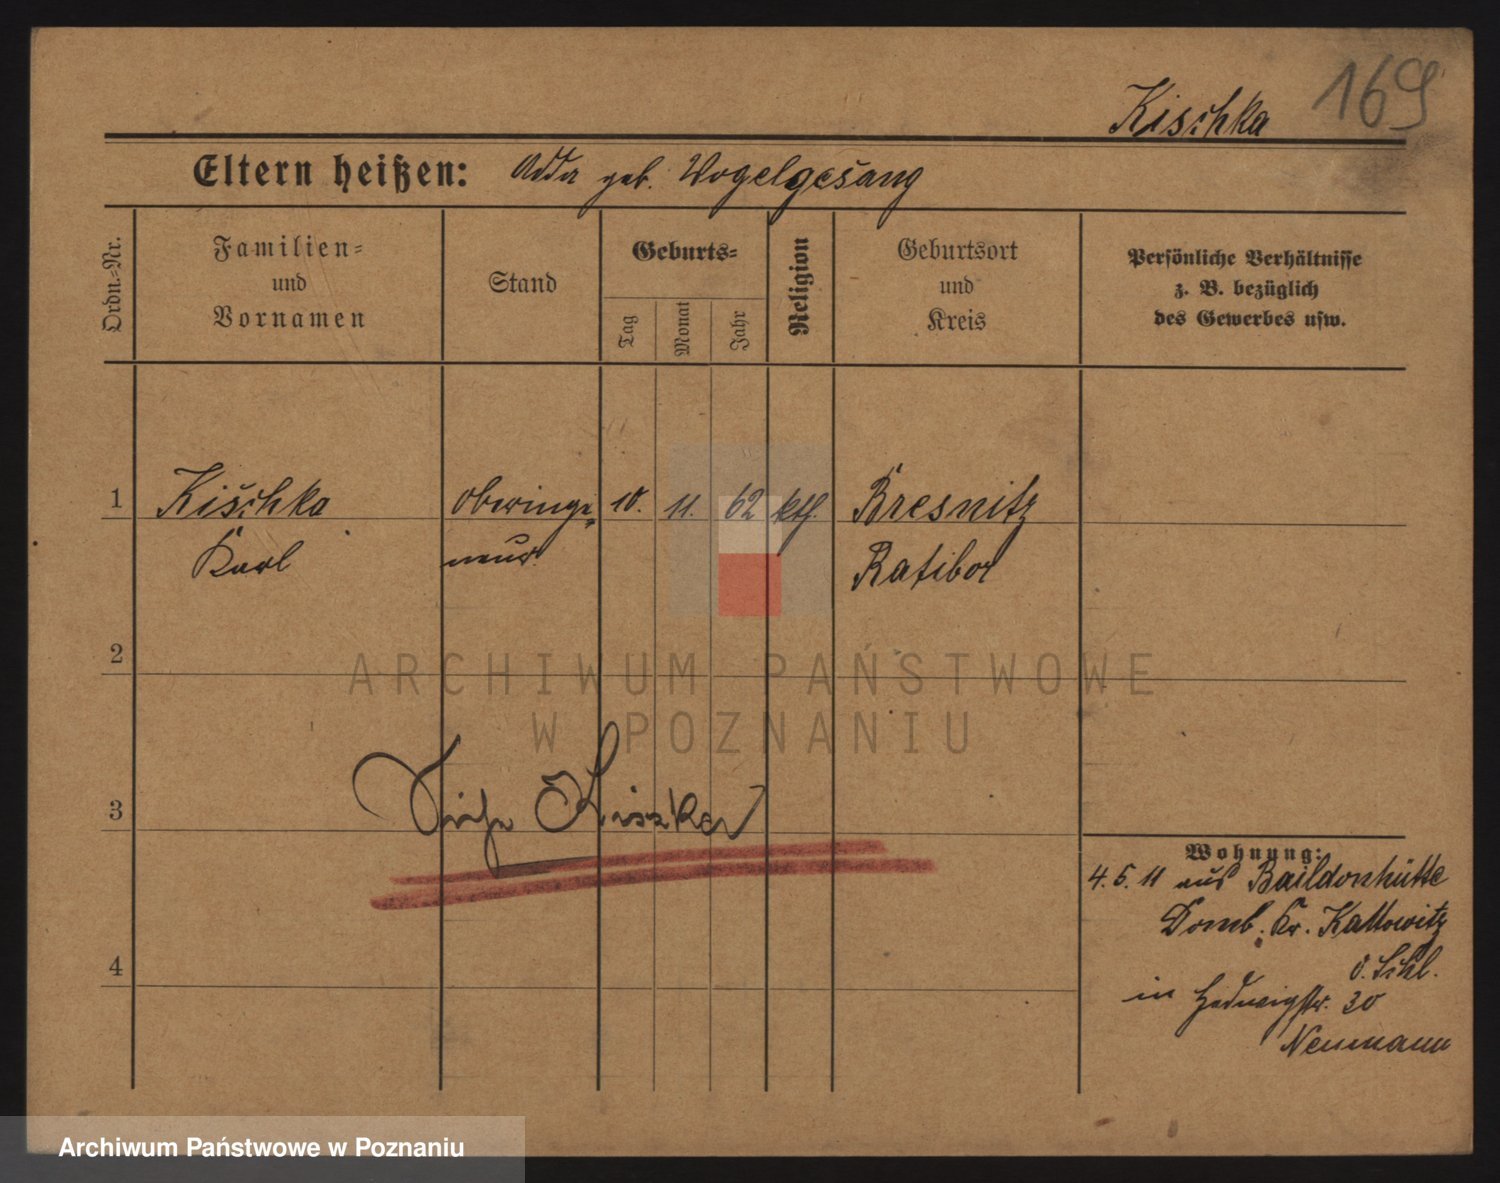 169
Kischka
Eltern heißen: geb. Vogelgesang
Ordn.=Nr.
Familien=
und
Vornamen
Stand
Geburts=
Tag
Monat
Jahr
Religion
Geburtsort
und
Kreis
Persönliche Verhältnisse
z. B. bezüglich
des Gewerbes usw.
1 Kischka Oberinge= 10. 11. 62 ktl. Bresnitz
Karl nieur Ratibor
2
ARCHIWUM PAŃSTWOWE
W POZNANIU
3 Siehe Kiszker
Wohnung:
4. 5. 11 aus Baildonhütte
Domb. Kr. Kattowitz
4
o. Schl.
in Hedwigstr. 30
Neumann
Archiwum Państwowe w Poznaniu